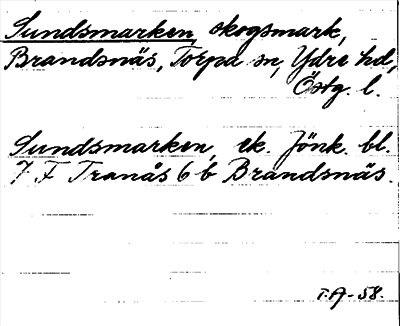 Sundsmarken, skogsmark,
Brandsnäs, Torpa sn, Ydre hd,
Östg. l.
Sundsmarken, ek. Jönk. bl.
7 F Tranås 6 b Brandsnäs.
T.A-58.